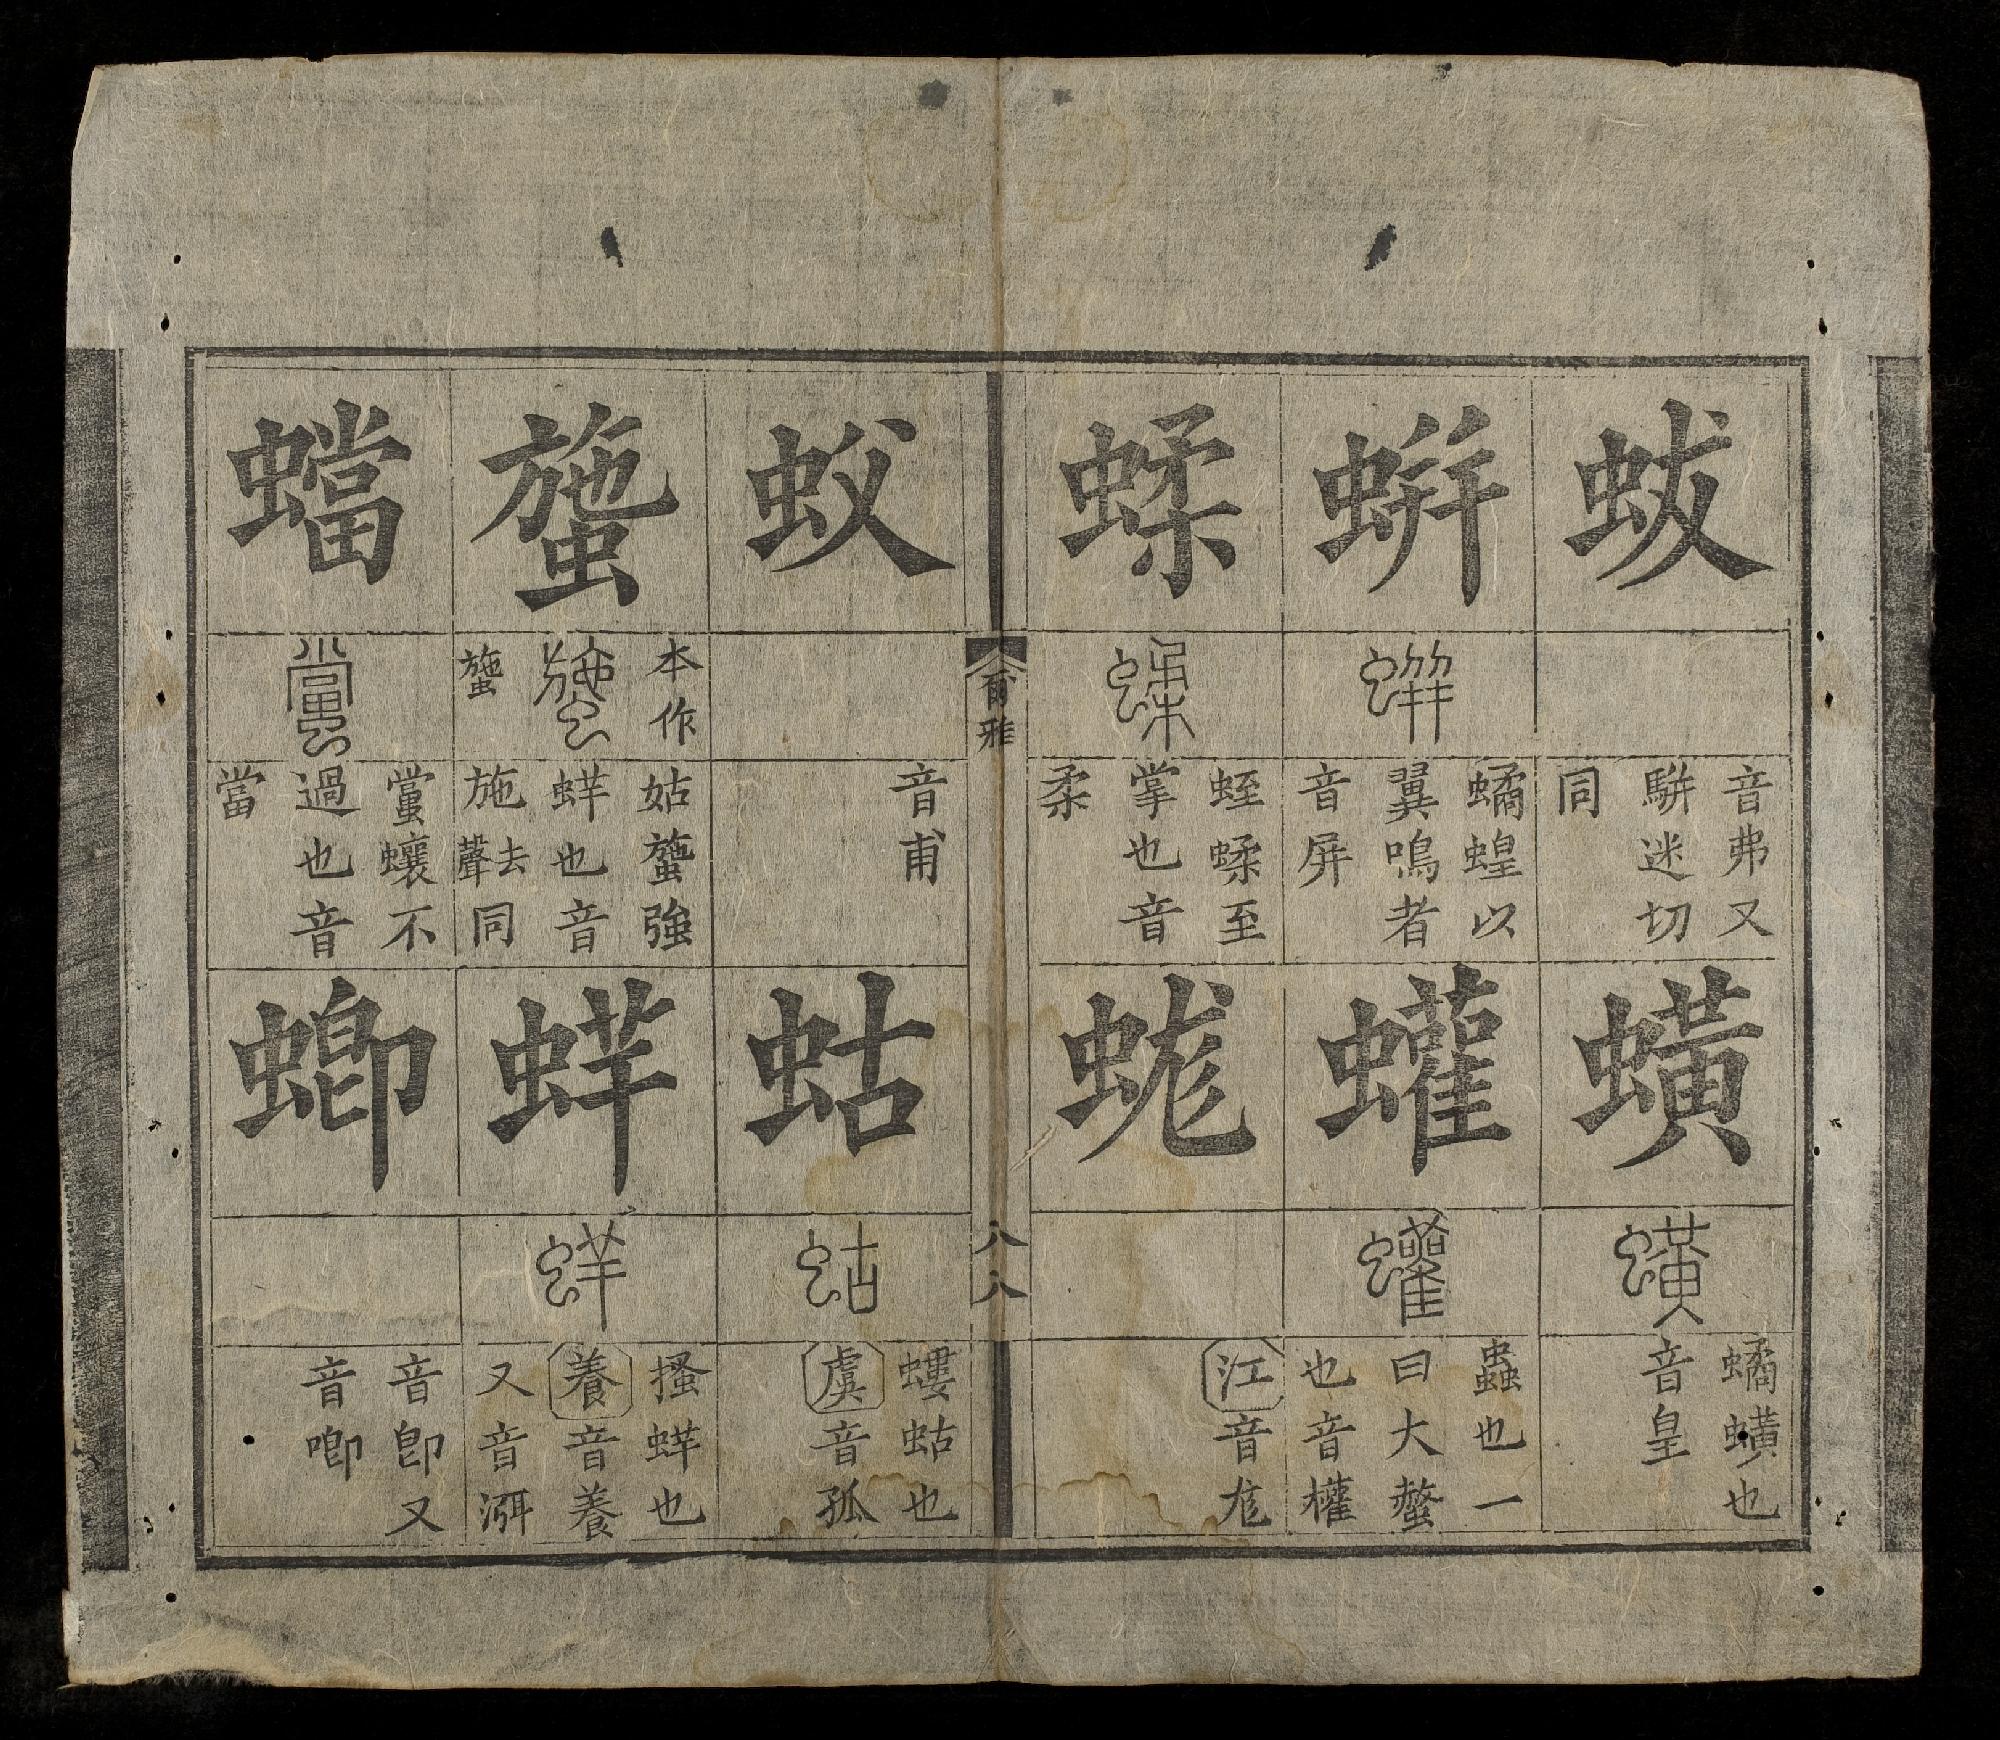 蛂
音弗又
駢迷切
同
蟥
蟥
𧑐蟥也
音皇
蛢
蛢
𧑐蝗以
翼鳴者
音屏
蠸
蠸
蟲也一
曰大螫
也音權
蝚
蝚
蛭蝚至
掌也音
柔
蛖
江音尨
爾雅
八八
蚥
音甫
蛄
蛄
螻蛄也
虞音孤
䗐
本作
䗐
䗐
姑䗐強
蛘也音
施去聲同
蛘
蛘
搔蛘也
養音養
又音渳
蟷
蟷
蟷蠰不
過也音
當
蝍
音卽又
音唧